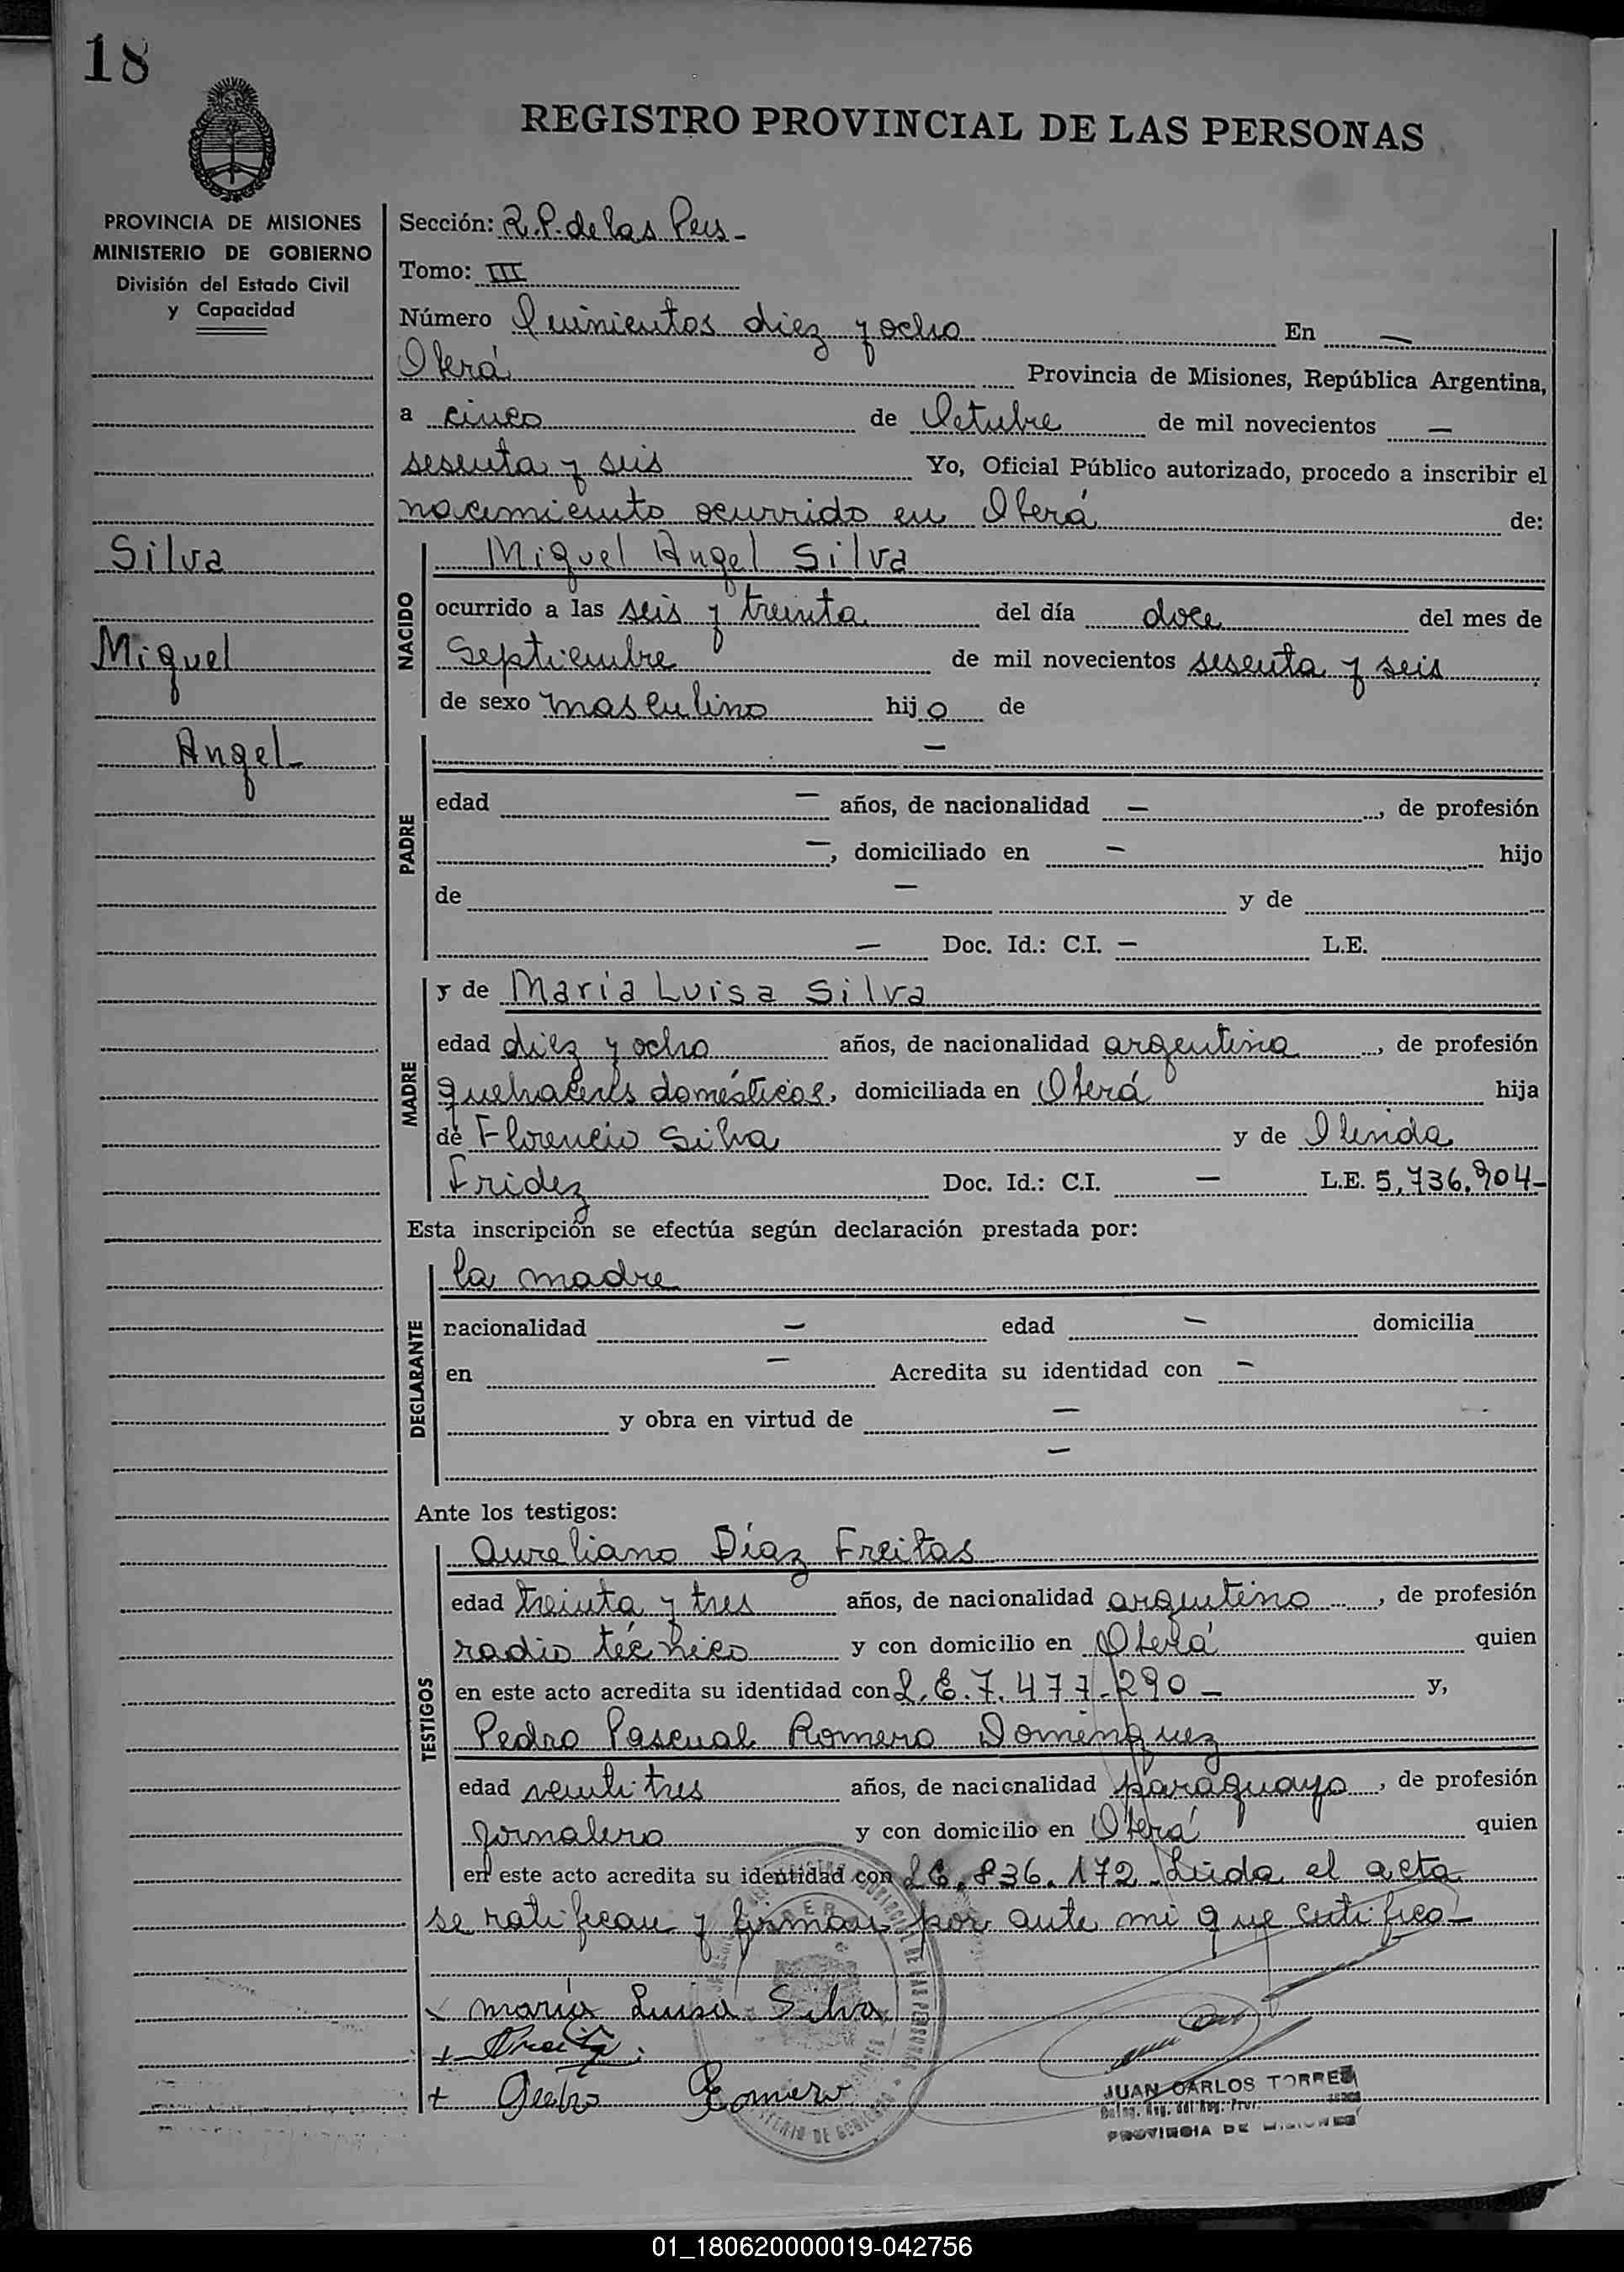 18
REGISTRO PROVINCIAL DE LAS PERSONAS
PROVINCIA DE MISIONES
MINISTERIO DE GOBIERNO
División del Estado Civil
y Capacidad
Silva
Miguel
Angel-
Sección: R.P. de las Pers-
Tomo: III
Número Quinientos diez y ocho En —
Oberá Provincia de Misiones, República Argentina,
a cinco de Octubre de mil novecientos —
sesenta y seis Yo, Oficial Público autorizado, procedo a inscribir el
nacimiento ocurrido en Oberá de:
NACIDO
Miguel Angel Silva
ocurrido a las seis y treinta del día doce del mes de
Septiembre de mil novecientos sesenta y seis
de sexo masculino hijo de
PADRE
—
edad — años, de nacionalidad —, de profesión
—, domiciliado en — hijo
de — y de
— Doc. Id.: C.I. — L.E.
MADRE
y de María Luisa Silva
edad diez y ocho años, de nacionalidad argentina, de profesión
quehaceres domésticos, domiciliada en Oberá hija
de Florencio Silva y de Olinda
Fridez Doc. Id.: C.I. — L.E. 5.736.904-
Esta inscripción se efectúa según declaración prestada por:
DECLARANTE
la madre
nacionalidad — edad — domicilia
en — Acredita su identidad con —
y obra en virtud de —
—
Ante los testigos:
TESTIGOS
Aureliano Díaz Freitas
edad treinta y tres años, de nacionalidad argentino, de profesión
radio técnico y con domicilio en Oberá quien
en este acto acredita su identidad con L.E. 7.477.290- y,
Pedro Pascual Romero Domínguez
edad veintitres años, de nacionalidad paraguayo, de profesión
jornalero y con domicilio en Oberá quien
en este acto acredita su identidad con 836.172. Leida el acta
se ratifican y firman por ante mi que certifico-
maría Luisa Silva
Pedro Romero
JUAN CARLOS TORRES
PROVINCIA DE MISIONES
01_180620000019-042756